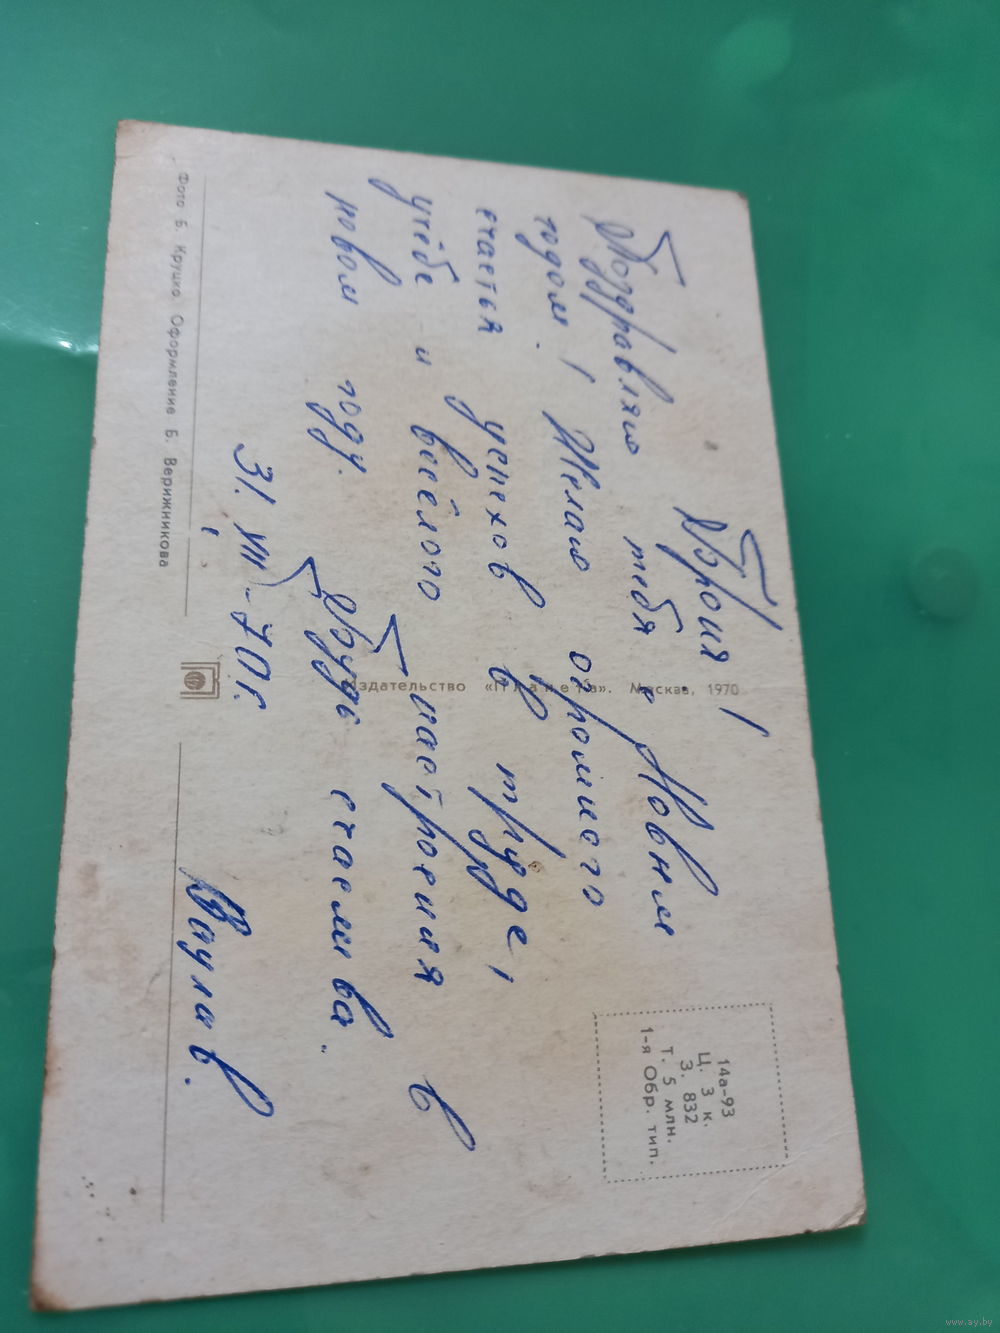 Броня!
Поздравляю тебя с Новым
годом! Желаю огромного
счастья успехов в труде,
учёбе и весёлого настроения в
новом году.
Будь счастлива.
31. XII-70 г.
Издательство «Планета». Москва, 1970
14а-93
Ц. 3 к.
З. 832
Т. 5 млн.
1-я Обр. тип.
Фото Б. Круцко. Оформление Б. Верижникова
www.ay.by